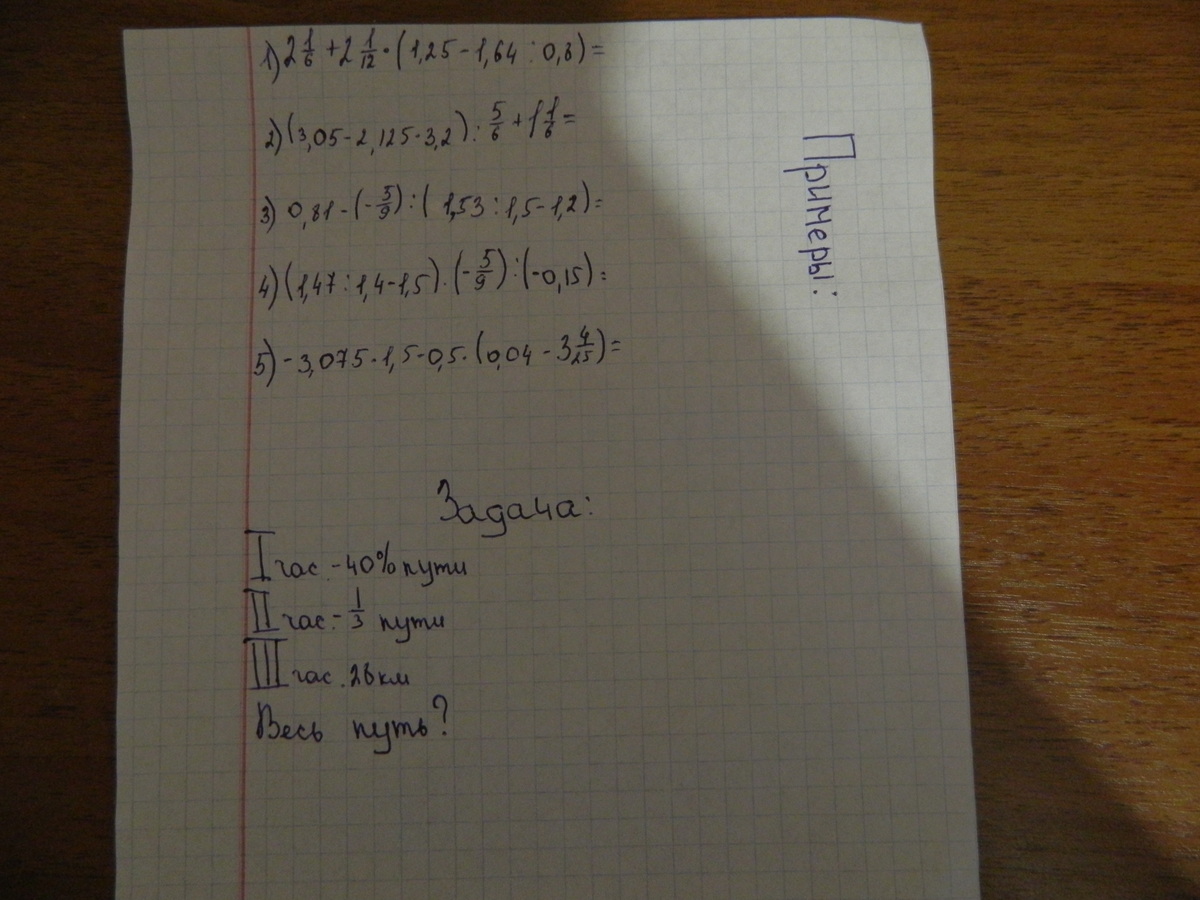 Примеры:
1) 2 1/6 + 2 1/12 · (1,25 - 1,64 : 0,8) =
2) (3,05 - 2,125 · 3,2) : 5/6 + 1 1/6 =
3) 0,81 - (-5/9) : (1,53 : 1,5 - 1,2) =
4) (1,47 : 1,4 - 1,5) · (-5/9) : (-0,15) =
5) -3,075 · 1,5 - 0,5 · (0,04 - 3 4/25) =
Задача:
I час. - 40% пути
II час. - 1/3 пути
III час. 28 км
Весь путь?